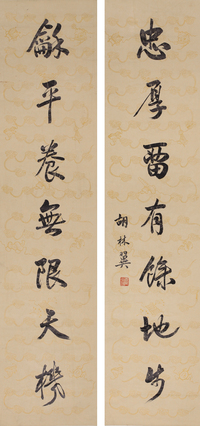 忠厚留有餘地步
龢平養無限天機
胡林翼